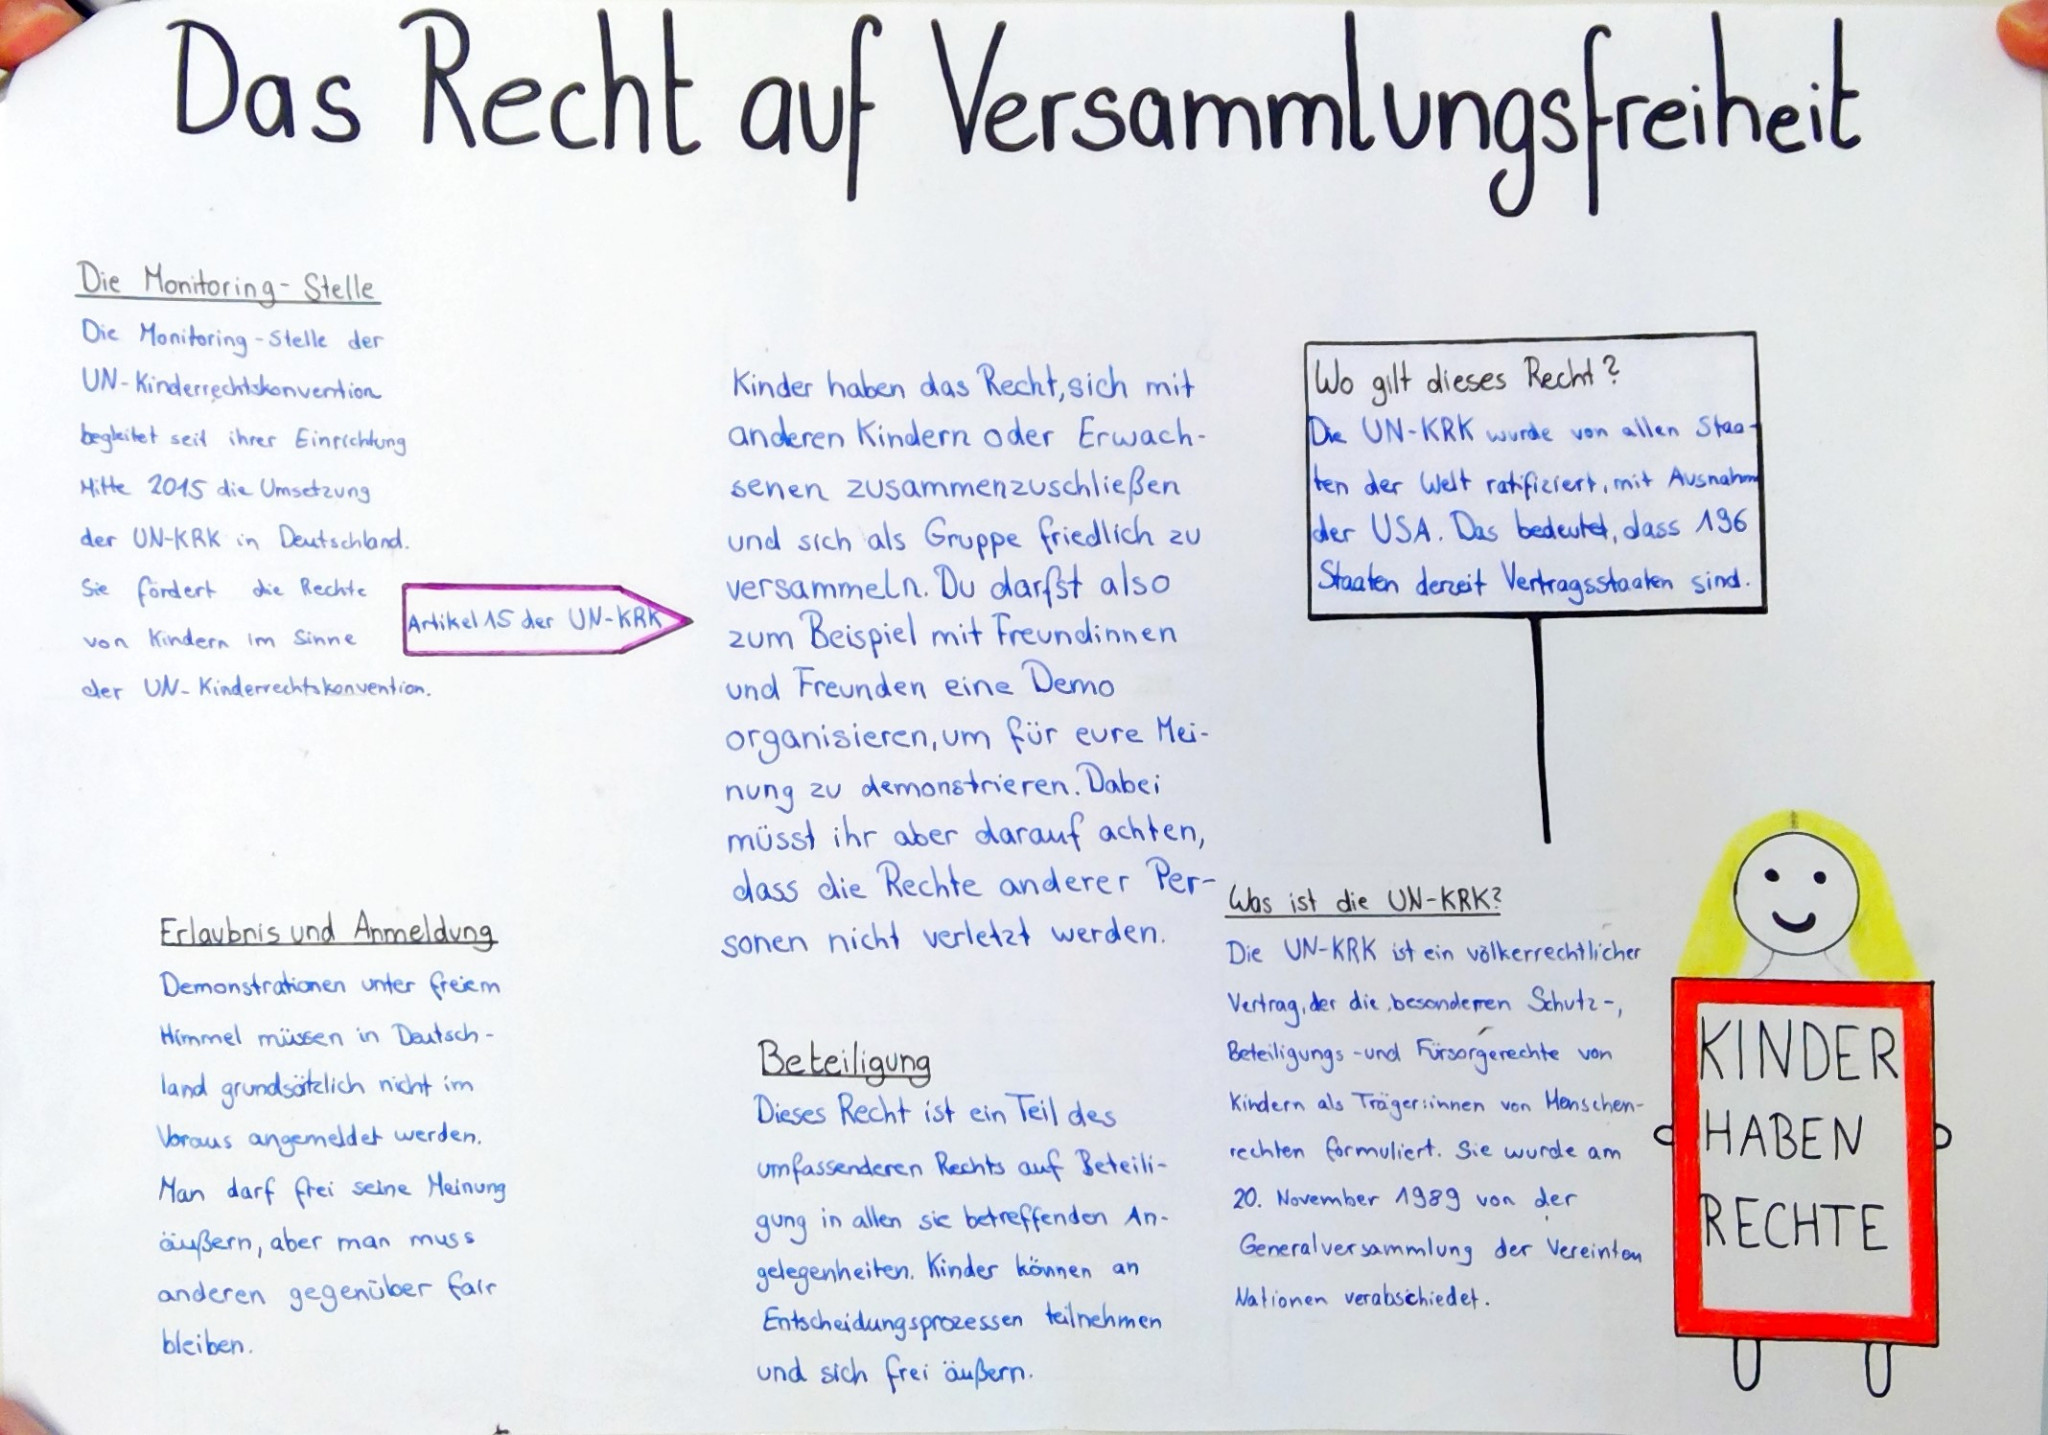 Das Recht auf Versammlungsfreiheit
Die Monitoring-Stelle
Die Monitoring-Stelle der
UN-Kinderrechtskonvention
begleitet seit ihrer Einrichtung
Mitte 2015 die Umsetzung
der UN-KRK in Deutschland.
Sie fördert die Rechte
von Kindern im Sinne
der UN-Kinderrechtskonvention.
Artikel 15 der UN-KRK
Kinder haben das Recht, sich mit
anderen Kindern oder Erwach-
senen zusammenzuschließen
und sich als Gruppe friedlich zu
versammeln. Du darfst also
zum Beispiel mit Freundinnen
und Freunden eine Demo
organisieren, um für eure Mei-
nung zu demonstrieren. Dabei
müsst ihr aber darauf achten,
dass die Rechte anderer Per-
sonen nicht verletzt werden.
Wo gilt dieses Recht?
Die UN-KRK wurde von allen Staa-
ten der Welt ratifiziert, mit Ausnahm
der USA. Das bedeutet, dass 196
Staaten derzeit Vertragsstaaten sind.
Erlaubnis und Anmeldung
Demonstrationen unter freiem
Himmel müssen in Deutsch-
land grundsätzlich nicht im
Voraus angemeldet werden.
Man darf frei seine Meinung
äußern, aber man muss
anderen gegenüber fair
bleiben.
Beteiligung
Dieses Recht ist ein Teil des
umfassenderen Rechts auf Beteili-
gung in allen sie betreffenden An-
gelegenheiten. Kinder können an
Entscheidungsprozessen teilnehmen
und sich frei äußern.
Was ist die UN-KRK?
Die UN-KRK ist ein völkerrechtlicher
Vertrag, der die besonderen Schutz-,
Beteiligungs-und Fürsorgerechte von
Kindern als Träger:innen von Menschen-
rechten formuliert. Sie wurde am
20. November 1989 von der
Generalversammlung der Vereinten
Nationen verabschiedet.
KINDER
HABEN
RECHTE